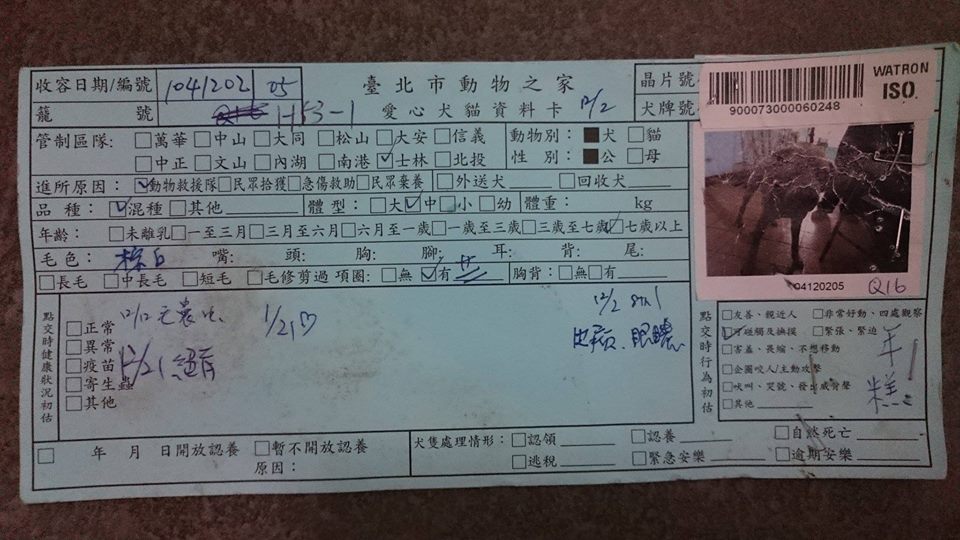 收容日期/編號 1041202 05 臺北市動物之家 晶片號
籠 號 1-153-1 愛心犬貓資料卡 12/2 犬牌號
WATRON
ISO
900073000060248
管制區隊: □萬華 □中山 □大同 □松山 □大安 □信義 動物別: ■犬 □貓
□中正 □文山 □內湖 □南港 ☑士林 □北投 性 別: ■公 □母
進所原因: ☑動物救援隊 □民眾拾獲 □急傷救助 □民眾棄養 □外送犬 □回收犬
品 種: ☑混種 □其他 體 型: □大 ☑中 □小 □幼 體重: kg
年齡: □未離乳 □一至三月 □三月至六月 □六月至一歲 □一歲至三歲 □三歲至七歲 ☑七歲以上
毛 色: 棕白 嘴: 頭: 胸: 腳: 耳: 背: 尾:
□長毛 □中長毛 □短毛 □毛修剪過 項圈: □無 ☑有 胸背: □無 □有
04120205 Q16
點交時健康狀況初估
□正常
□異常
□疫苗
□寄生蟲
□其他
1/21
12/2
12/21
點交時行為初估
□友善、親近人 □非常好動、四處觀察
☑可碰觸及撫摸 □緊張、緊迫
□害羞、畏縮、不想移動
□企圖咬人/主動攻擊
□吠叫、哭號、發出威脅聲
□其他
年糕
□ 年 月 日開放認養 □暫不開放認養
原因:
犬隻處理情形: □認領 □認養 □自然死亡
□逃稅 □緊急安樂 □逾期安樂